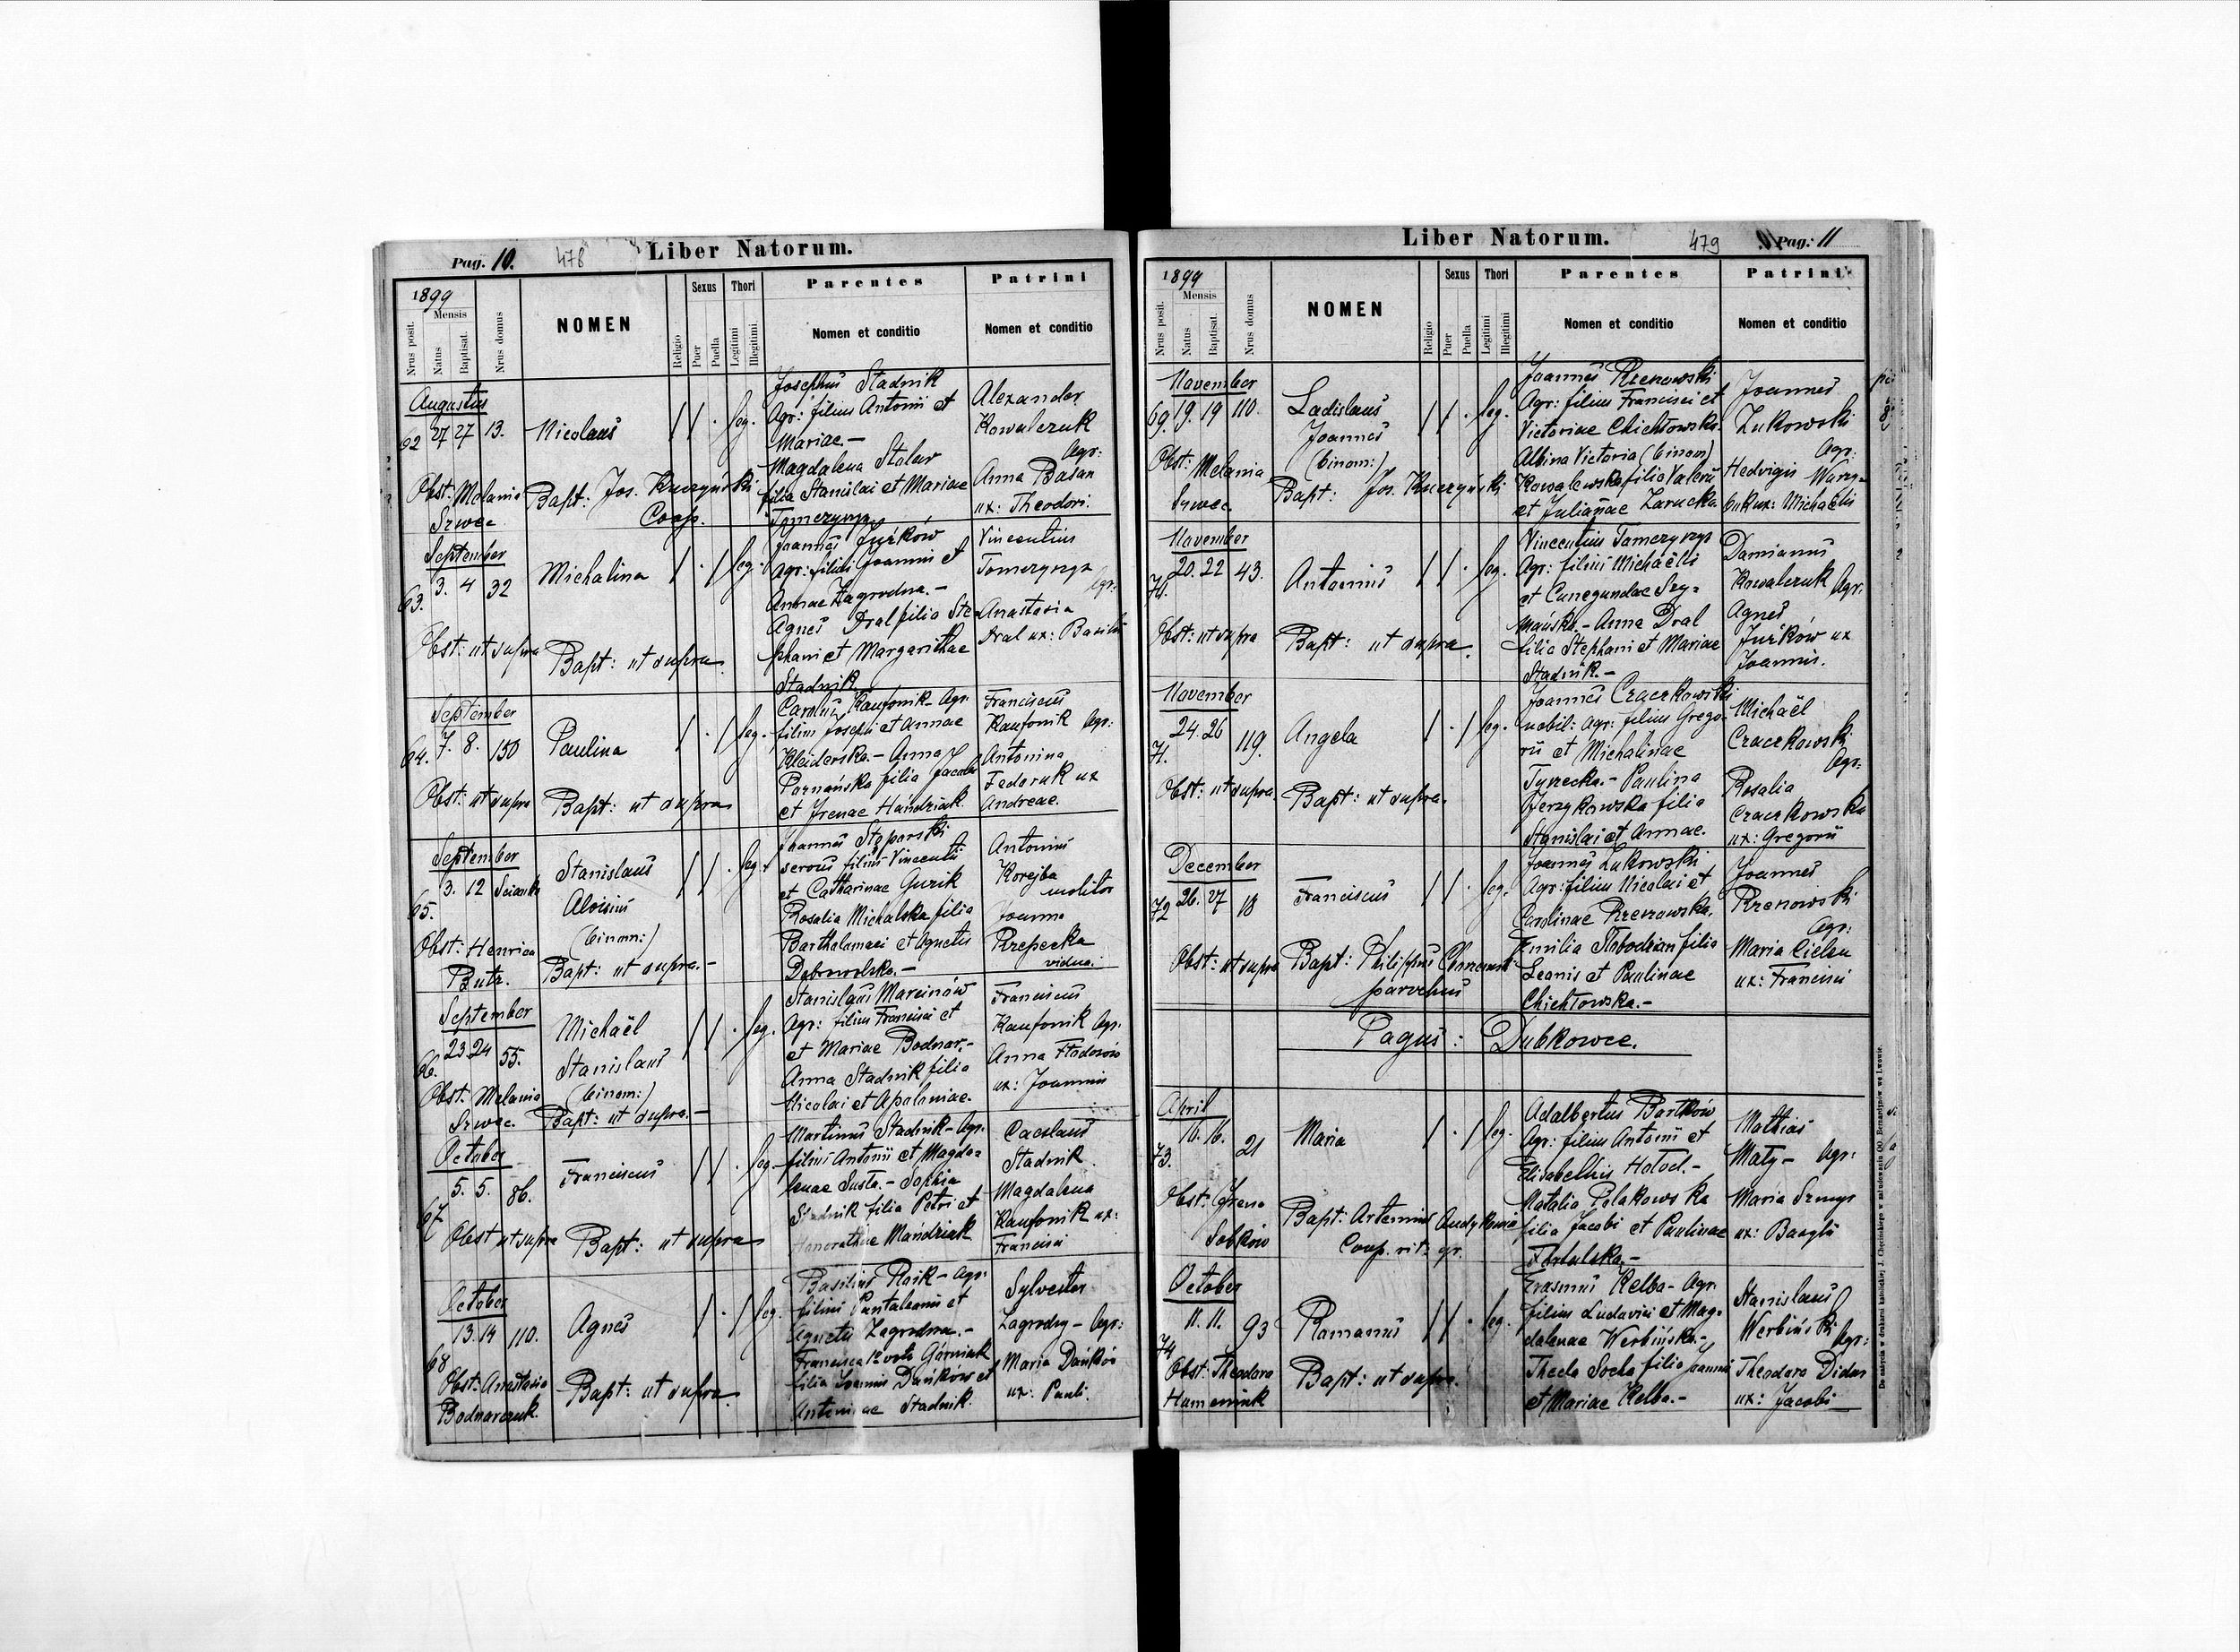 Pag. 10. 478 Liber Natorum.
1899
Mensis
Nrus posit.
Natus
Baptisat.
Nrus domus
NOMEN
Religio
Sexus
Puer
Puella
Thori
Legitimi
Illegitimi.
Parentes
Nomen et conditio
Patrini
Nomen et conditio
Augustus
62 27 27 13. Nicolaus leg.
Josephus Stadnik
Agr: filius Antonii et
Mariae.-
Magdalena Stolar
filia Stanislai et Mariae
Tomczyszyn
Alexander
Kowalczuk
Agr:
Anna Basan
ux: Theodori.
Obst: Melania
Szwec
Bapt: Jos. Kuczyński
Coop.
September
63. 3. 4 32 Michalina leg.
Joannes Jurków
Agr: filius Joannis et
Annae Zagrodna.-
Agnes Dral filia Ste=
phani et Margarithae
Stadnik
Vincentius
Tomczyszyn
Agr:
Anastasia
Dral ux: Basilii
Obst: ut supra
Bapt: ut supra.
September
64. 7. 8. 150 Paulina leg.
Carolus Kaufonik - Agr.
filius Josephi et Annae
Anna
Poznańska filia Jacobi
et Irenae Handziak
Franciscus
Kaufonik Agr:
Antonina
Fedoruk ux
Andreae.
Obst: ut supra
Bapt: ut supra
September
65. 3. 12 Stanislaus leg.
Aloisius
(binom:)
Joannes
servus filius Vincentii
et Catharinae Guzik
Rosalia Michalska filia
Bartholomaei et Agnetis
Dobrowolska.-
Antonius
Korejba
molitor
Joanna
Rzepecka
vidua.
Obst: Henrica
Butz.
Bapt: ut supra.-
September
66. 23 24 55. Michaël leg.
Stanislaus
(binom:)
Stanislaus Marcinów
Agr: filius Francisci et
et Mariae Bodnar.-
Anna Stadnik filia
Nicolai et Apoloniae.
Franciscus
Kaufonik Agr.
Anna
ux: Joannis
Obst: Melania
Szwec.
Bapt: ut supra.-
October
67 5. 5. 86. Franciscus leg.
Martinus Stadnik - Agr.
filius Antonii et Magda=
lenae Susta.- Sophia
Stadnik filia Petri et
Honorathae Mandziak
Caeslaus
Stadnik
Magdalena
Kaufonik ux:
Francisci
Obst ut supra
Bapt: ut supra
October
68 13. 14 110. Agnes leg.
Basilius Rsik - Agr.
filius Pantaleonis et
Agnetis Zagrodna.-
Francisca 1º voto Gorniak
filia Joannis Dańków et
Antoninae Stadnik.
Sylvester
Zagrodny - Agr:
Maria Dańków
ux: Pauli.
Obst: Anastasia
Bodnarczuk.
Bapt: ut supra.
Liber Natorum. 479 Pag: 11
1899
Mensis
Nrus posit.
Natus
Baptisat.
Nrus domus
NOMEN
Religio
Sexus
Puer
Puella
Thori
Legitimi
Illegitimi
Parentes
Nomen et conditio
Patrini
Nomen et conditio
November
69. 19. 19 110. Ladislaus leg.
Joannes
(binom:)
Joannes Rzenowski
Agr: filius Francisci et
Victoriae Chichłowska.
Albina Victoria (binom)
Kowalewska filia Valerii
et Julianae Zarucka.
Joannes
Żukowski
Agr:
Hedvigis Warys=
czuk ux: Michaëlis
Obst: Melania
Szwec.
Bapt: Jos. Kuczyński
November
70. 20. 22 43. Antonius leg.
Vincentius Tomczyszyn
Agr: filius Michaëlis
et Cunegundae Szy=
mańska.- Anna Dral
filia Stephani et Mariae
Stadnik.-
Damianus
Kowalczuk Agr.
Agnes
Jurków ux
Joannis.
Obst: ut supra
Bapt: ut supra.
November
71. 24. 26 119. Angela leg.
Joannes Craczkowski
nobil: Agr: filius Grego=
rii et Michalinae
Tyrecka.- Paulina
Jerzykowska filia
Stanislai et Annae.
Michaël
Craczkowski
Agr:
Rosalia
Craczkowska
ux: Gregorii
Obst: ut supra.
Bapt: ut supra.
December
72 26. 27 18 Franciscus leg.
Joannes Żukowski
Agr: filius Nicolai et
Carolinae Rzenowska.
Emilia Słobodzian filia
Leonis et Paulinae
Chichłowska.-
Joannes
Rzenowski
Agr:
Maria Cielen
ux: Francisci
Obst: ut supra
Bapt: Philippus
parochus
Pagus: Dubkowce.
April
73. 16. 16. 21 Maria leg.
Adalbertus Bartków
Agr: filius Antonii et
Elisabethis Hołod.-
Natalia Polakowska
filia Jacobi et Paulinae
Mathias
Mały - Agr:
Maria
ux: Basylii
Obst: Irena
Sobków
Bapt: Artemius
Coop. rit. gr.
October
74 11. 11. 93 Romanus leg.
Erasmus Kelba - Agr.
filius Ludovici et Mag=
dalenae Werbińska.-
Thecla Socha filia Joannis
et Mariae Kelba.-
Stanislaus
Werbiński Agr:
Theodora Didur
ux: Jacobi
Obst: Theodora
Humeniuk
Bapt: ut supra.
Do nabycia w drukarni katolickiej J. Chęcińskiego w zabudowaniu OO. Bernardynów we Lwowie.